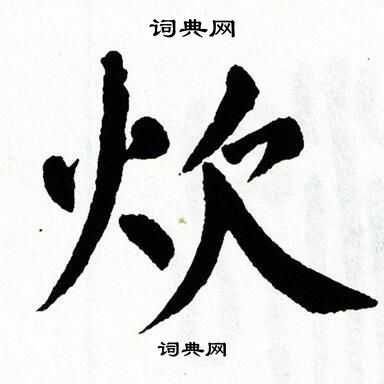 词典网
炊
词典网